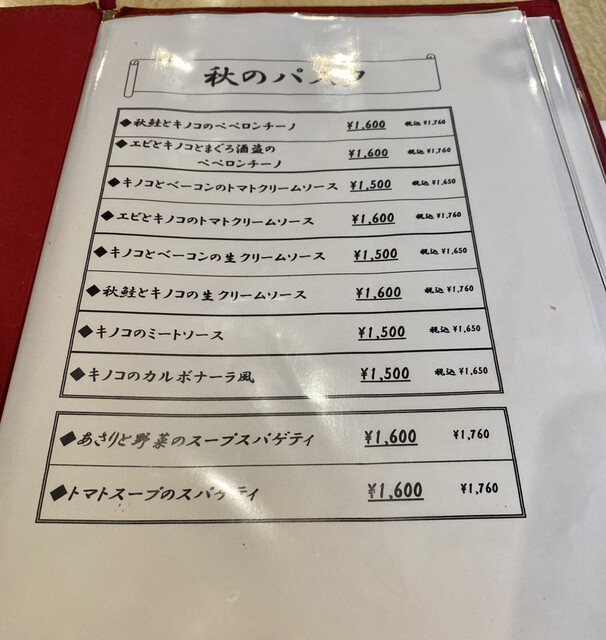 秋のパスタ
◆秋鮭とキノコのペペロンチーノ ¥1,600 税込¥1,760
◆エビとキノコとまぐろ酒盗の
ペペロンチーノ ¥1,600 税込¥1,760
◆キノコとベーコンのトマトクリームソース ¥1,500 税込¥1,650
◆エビとキノコのトマトクリームソース ¥1,600 税込¥1,760
◆キノコとベーコンの生クリームソース ¥1,500 税込¥1,650
◆秋鮭とキノコの生クリームソース ¥1,600 税込¥1,760
◆キノコのミートソース ¥1,500 税込¥1,650
◆キノコのカルボナーラ風 ¥1,500 税込¥1,650
◆あさりと野菜のスープスパゲティ ¥1,600 ¥1,760
◆トマトスープのスパゲティ ¥1,600 ¥1,760